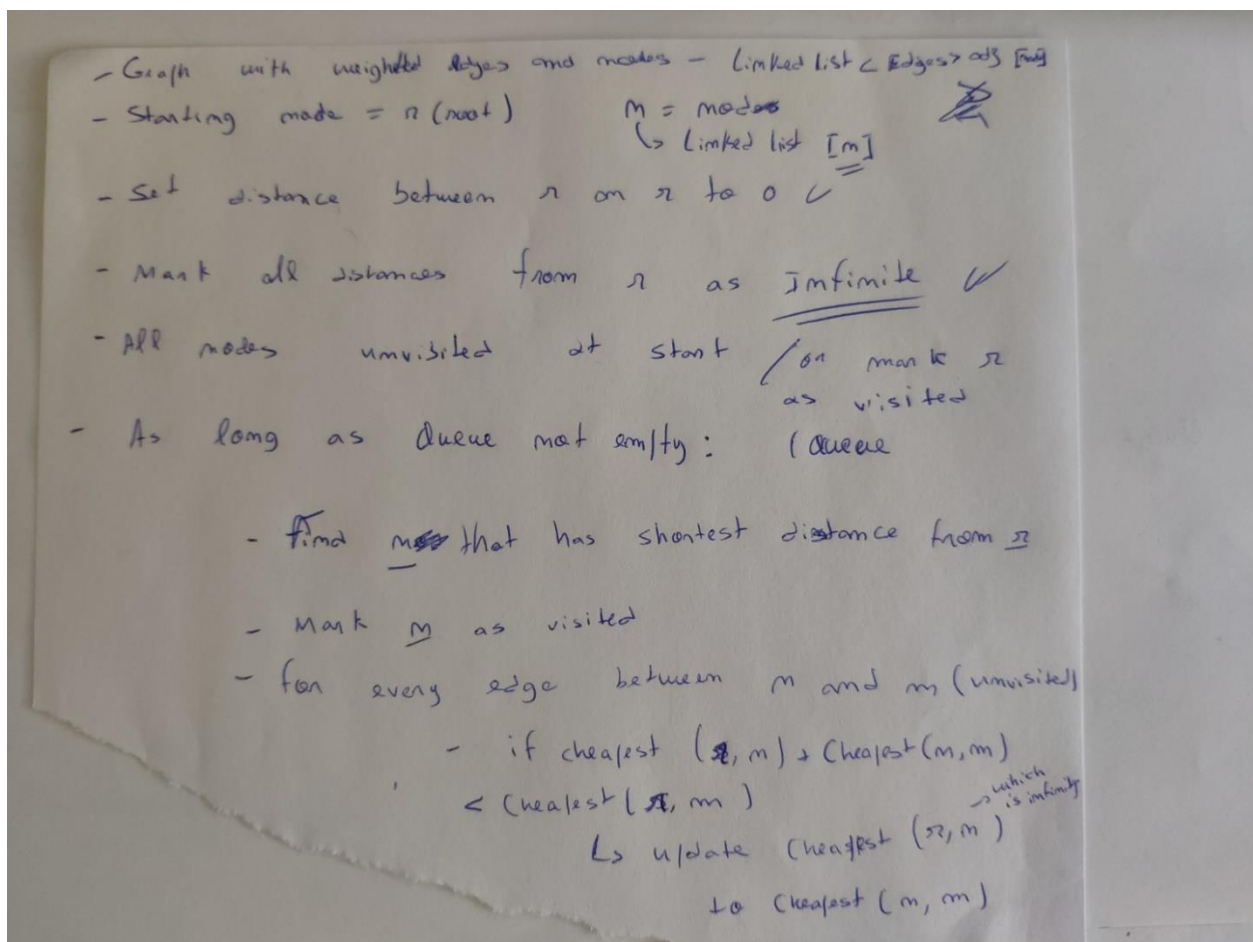 - Graph with weighted edges and nodes - Linked list < Edges> adj []
- Starting node = r (root) n = nodes
↳ Linked list [n]
- Set distance between r on r to 0 ✓
- Mark all distances from r as Infinite ✓
- All nodes unvisited at start / or mark r
as visited
- As long as Queue not empty: ( Queue
- Find n that has shortest distance from r
- Mark n as visited
- for every edge between n and m (unvisited)
- if cheapest (r, n) + Cheapest (n, m)
< Cheapest (r, m) → which
is infinity
↳ update Cheapest (r, m)
to Cheapest (n, m)